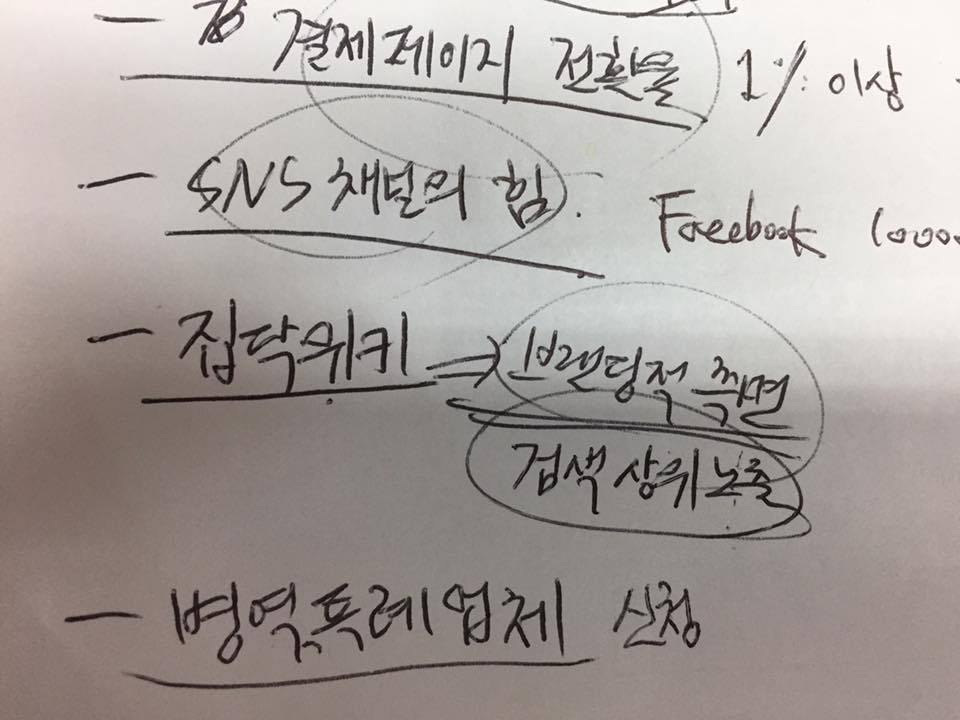 — 결제페이지 전환율 1% 이상
— SNS 채널의 힘. Facebook 10000
— 집닥위키 => 브랜딩적 측면
검색 상위 노출
— 병역특례업체 신청